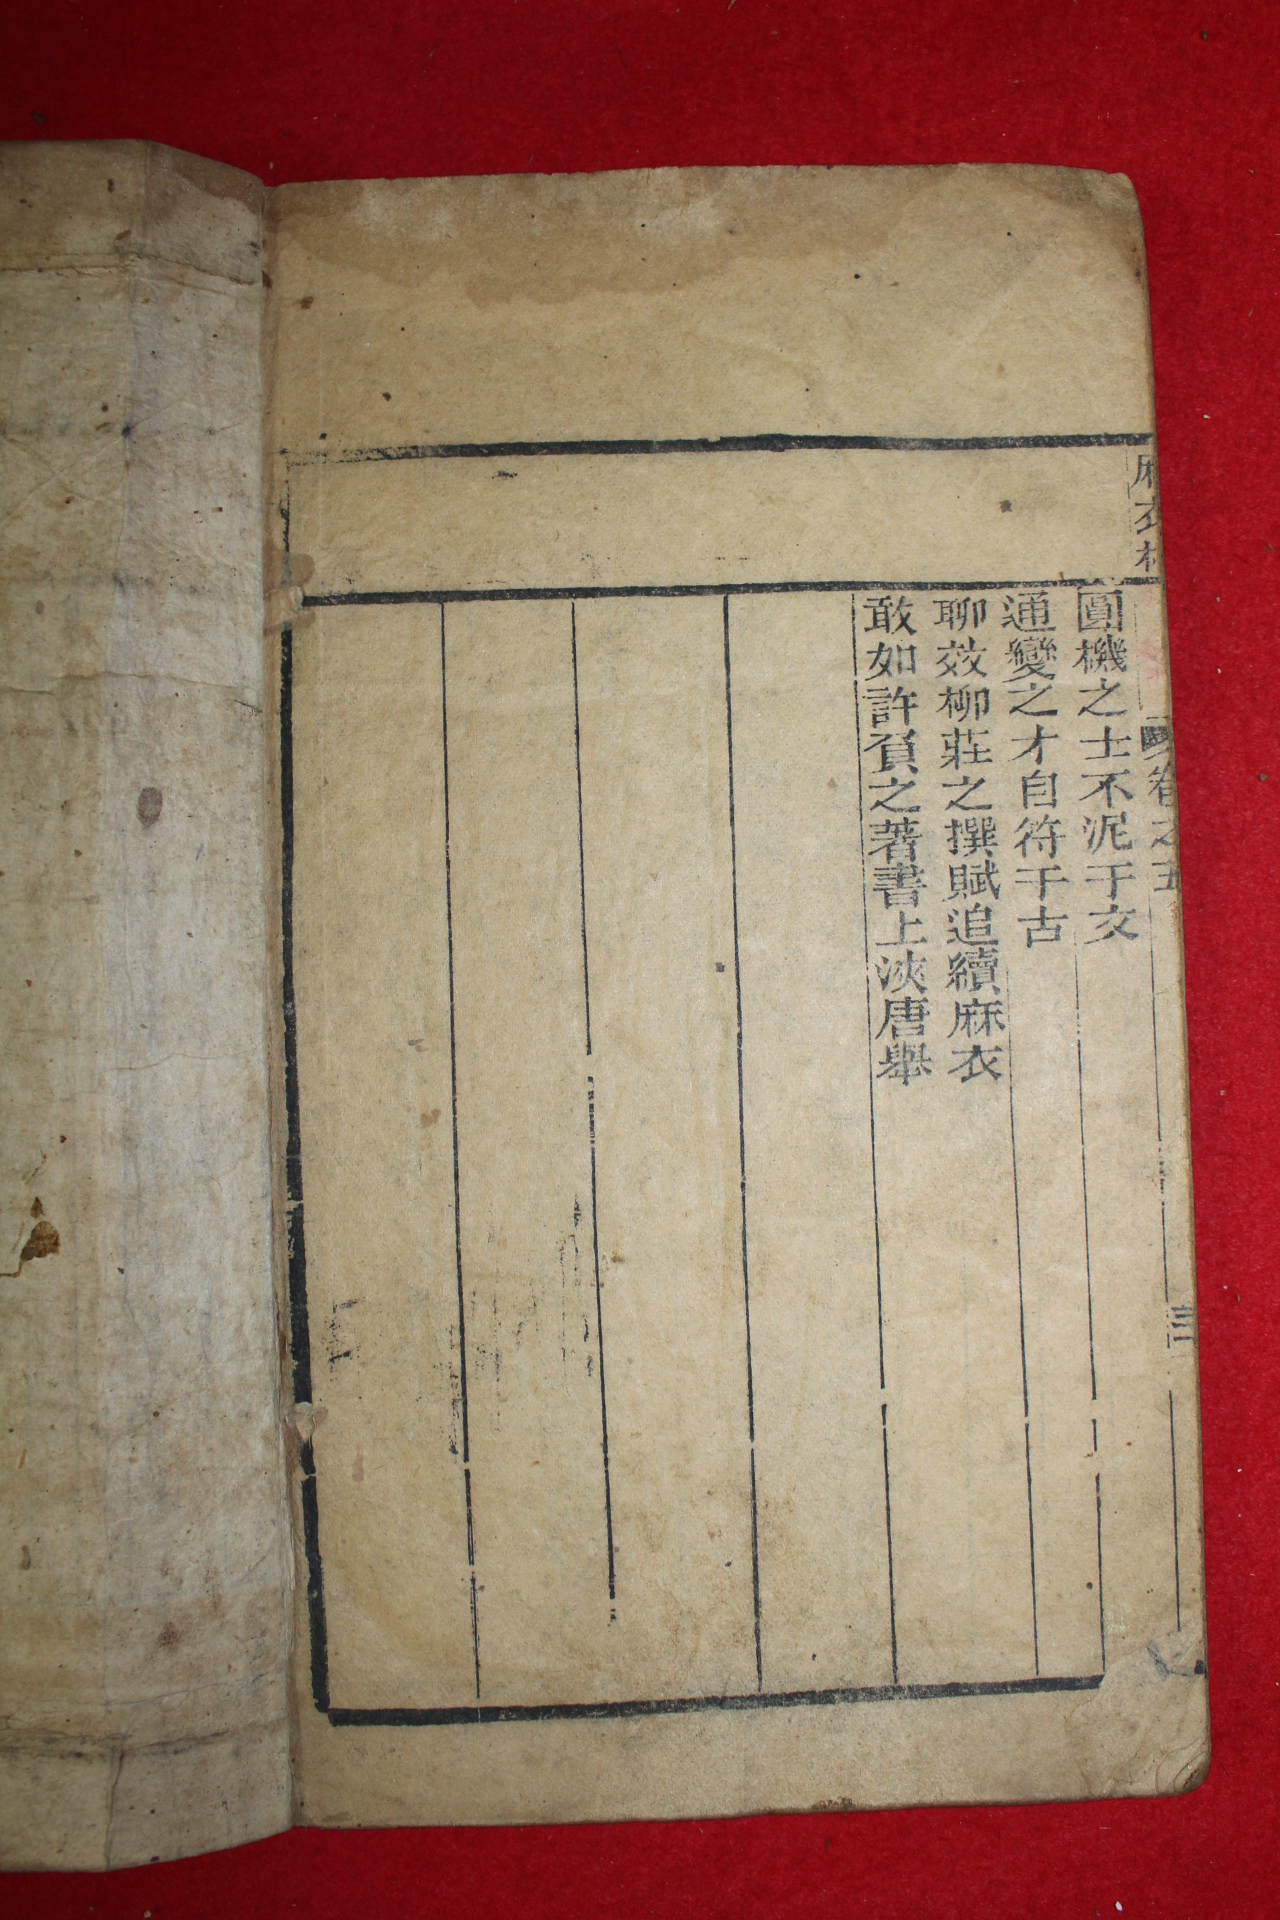 麻衣相
卷之五
圓機之士不泥于文
通變之才自符千古
聊效柳莊之撰賦追續麻衣
敢如許負之著書上浹唐舉